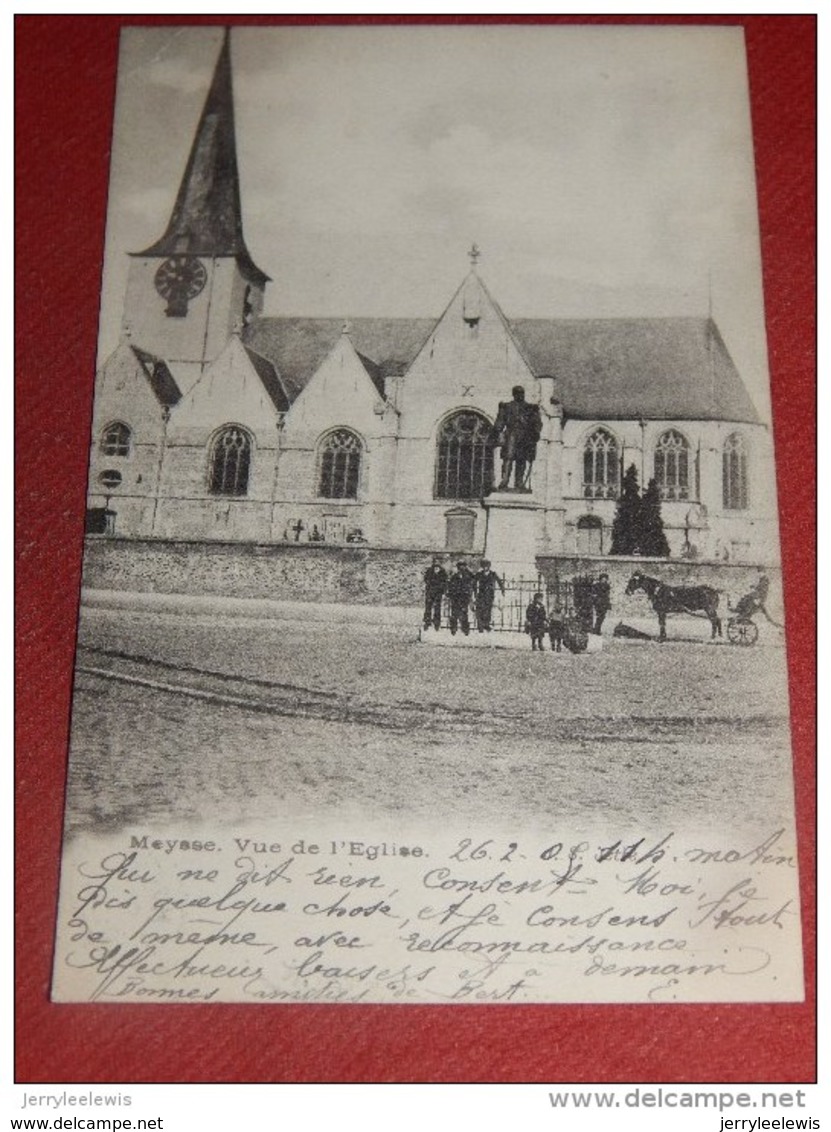 Meysse. Vue de l'Eglise. 26.2.0 11h. matin
Qui ne dit rien, Consent= Moi, je
dis quelque chose, et Je Consens tout
de même, avec reconnaissance
Affectueux baisers et à demain
Bonnes amitiés de Bert. E.
jerryleelewis
jerryleelewis
delcampe.net
jerryleelewis